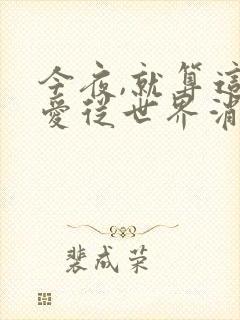 今夜,就算這
愛從世界消
裴成荣